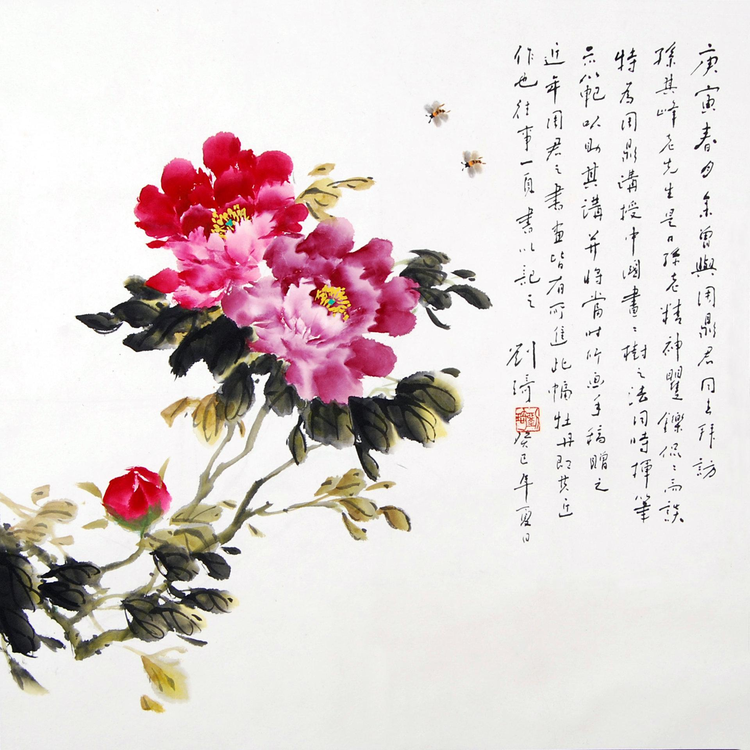 庚寅春日余曾與周鼎君同去拜訪
孫其峰老先生是日孫老精神矍鑠侃〻而談
特為周鼎講授中國畫〻樹之法同時揮筆
示範以助其講并將當時所畫手稿贈之
近年周君之書畫皆有所進此幅牡丹即其近
作也往事一頁書以記之 劉琦
癸巳年夏日